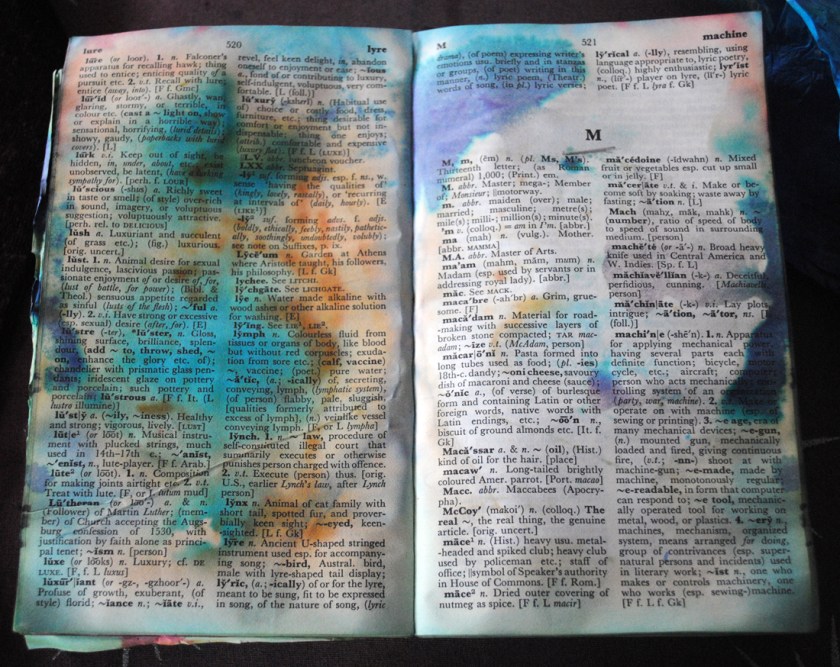 lure
520
lyre
lūre (or loor). 1. n. Falconer's
apparatus for recalling hawk; thing
used to entice; enticing quality of a
pursuit etc. 2. v.t. Recall with lure;
entice (away, into). [F f. Gmc]
lūr'id (or loor'-) a. Ghastly, wan,
glaring, stormy, or terrible, in
colour etc. (cast a ~ light on, show
or explain in a horrible way);
sensational, horrifying, (lurid details);
showy, gaudy, (paperbacks with lurid
covers). [L]
lûrk v.i. Keep out of sight, be
hidden, in, under, about, etc.;
unobserved, be latent, (have a lurking
sympathy). [perh. f. LOUR]
lu'scious (-shus) a. Richly sweet
in taste or smell; (of style) over-rich
in sound, imagery, or voluptuous
suggestion; voluptuously attractive.
[perh. rel. to DELICIOUS]
lŭsh a. Luxuriant and succulent
(of grass etc.); (fig.) luxurious.
[orig. uncert.]
lŭst. 1. n. Animal desire for sexual
indulgence, lascivious passion; pas-
sionate enjoyment of or desire of, for,
(lust of battle, for power); (Bibl. &
Theol.) sensuous appetite regarded
as sinful (lusts of the flesh); ~'ful a.
(-lly). 2. v.i. Have strong or excessive
(esp. sexual) desire (after, for). [E]
lŭ'stre (-ter), *lŭ'ster, n. Gloss,
shining surface, brilliance, splen-
dour, (add ~ to, throw, shed, ~
on, enhance the glory etc. of);
chandelier with prismatic glass pen-
dants; iridescent glaze on pottery
and porcelain; such pottery and
porcelain; lŭ'strous a. [F f. It. (L
lustro illumine)]
lŭ'stȳ a. (~ily, ~iness). Healthy
and strong; vigorous, lively. [LUST]
lūte¹ (or lōōt) n. Musical instru-
ment with plucked strings, much
used in 14th-17th c.; ~'anist,
~'enist, n., lute-player. [F f. Arab.]
lūte² (or lōō-). 1. n. Composition
for making joints airtight etc. 2. v.t.
Treat with lute. [F, or L lutum mud]
Lū'theran (or lōō-) a. & n.
(Follower) of Martin Luther; (mem-
ber) of Church accepting the Augs-
burg confession of 1530, with
justification by faith alone as princi-
pal tenet; ~ism n. [person]
lūxe (or lōōks) n. Luxury; cf. DE
LUXE. [F, f. L luxus]
luxūr'iant (or -gz-, -gzhoor'-) a.
Profuse of growth, exuberant, (of
style) florid; ~iance n.; ~iāte v.i.,
revel, feel keen delight, in, abandon
oneself to enjoyment or ease; ~ious
a., fond of or contributing to luxury,
self-indulgent, voluptuous, very com-
fortable. [L (foll.)]
lŭ'xurȳ (-ksheri) n. (Habitual use
of) choice or costly food, dress,
furniture, etc.; thing desirable for
comfort or enjoyment but not in-
dispensable; thing one enjoys;
(attrib.) comfortable and expensive
(luxury flat). [F f. L (LUXE)]
L.V. abbr. luncheon voucher.
LXX abbr. Septuagint.
-lȳ¹ suf. forming adjs. esp. f. ns., w.
sense 'having the qualities of'
(kingly, lovely, rascally), or 'recurring
at intervals of' (daily, hourly). [E
(LIKE¹)]
-lȳ² suf. forming advs. f. adjs.
(boldly, ethically, feebly, nastily, pathetic-
ally, mockingly, undoubtedly, volubly);
see note on Suffixes, p. ix.
Lȳcē'um n. Garden at Athens
where Aristotle taught, his followers,
his philosophy. [L f. Gk]
lychee. See LITCHI.
lȳ'chgāte. See LICHGATE.
lȳe n. Water made alkaline with
wood ashes or other alkaline solution
for washing. [E]
lȳ'ing. See LIE¹, LIE².
lymph n. Colourless fluid from
tissues or organs of body, like blood
but without red corpuscles; exuda-
tion from sore etc.; (calf, vaccine)
~, vaccine; (poet.) pure water;
~ă'tic, (a.; -ically) of, secreting,
conveying, lymph, (lymphatic system),
(of person) flabby, pale, sluggish,
(qualities formerly attributed to
excess of lymph), (n.) veinlike vessel
conveying lymph. [F, or L lympha]
lȳnch. 1. n. ~ law, procedure of
self-constituted illegal court that
summarily executes or otherwise
punishes person charged with offence.
2. v.t. Execute (person) thus. [orig.
U.S., earlier Lynch's law, after Lynch
person]
lȳnx n. Animal of cat family with
short tail, spotted fur, and prover-
bially keen sight; ~-eyed, keen-
sighted. [L f. Gk]
lȳre n. Ancient U-shaped stringed
instrument used esp. for accompany-
ing song; ~-bird, Austral. bird,
male with lyre-shaped tail display;
lȳ'ric, (a.; -ically) of or for the lyre,
meant to be sung, fit to be expressed
in song, of the nature of song, (lyric
M
521
machine
drama), (of poem) expressing writer's
emotions usu. briefly and in stanzas
or groups, (of poet) writing in this
manner, (n.) lyric poem, (Theatr.)
words of song, (in pl.) lyric verses;
lȳ'rical a. (-lly), resembling, using
language appropriate to, lyric poetry,
(colloq.) highly enthusiastic; lyr'ist
n., (līr'-) player on lyre, (lĭ'r-) lyric
poet. [F f. L lyra f. Gk]
M
M, m, (ĕm) n. (pl. Ms, M's).
Thirteenth letter; (as Roman
numeral) 1,000; (Print.) EM.
M. abbr. Master; mega-; Member
of; Monsieur; ‖motorway.
m. abbr. maiden (over); male;
married; masculine; metre(s);
mile(s); milli-; million(s); minute(s).
'm v. (colloq.) = am in I'm. [abbr.]
ma (mah) n. (vulg.). Mother.
[abbr. MAMMA]
M.A. abbr. Master of Arts.
ma'am (mahm, măm, mam) n.
Madam (esp. used by servants or in
addressing royal ladies). [abbr.]
măc. See MACK.
maca'bre (-ah'br) a. Grim, grue-
some. [F]
macă'dam n. Material for road-
making with successive layers of
broken stone compacted; TAR mac-
adam; ~ize v.t. [McAdam, person]
măcarō'ni n. Pasta formed into
long tubes used as food; (pl. -ies)
18th-c. dandy; ~oni cheese, savoury
dish of macaroni and cheese (sauce);
~ŏ'nic a., (of verse) of burlesque
form and containing Latin or other
foreign words, native words with
Latin endings, etc.; ~ōō'n n.,
biscuit of ground almonds etc. [It. f.
Gk]
Macă'ssar a. & n. ~ (oil), (Hist.)
kind of oil for the hair. [place]
macaw' n. Long-tailed brightly
coloured Amer. parrot. [Port. macao]
Macc. abbr. Maccabees (Apocry-
pha).
McCoy' (makoi') n. (colloq.) The
real ~, the real thing, the genuine
article. [orig. uncert.]
māce¹ n. (Hist.) heavy usu. metal-
headed and spiked club; heavy club
used by policeman etc.; staff of
office; ‖symbol of Speaker's authority
in House of Commons. [F f. Rom.]
māce² n. Dried outer covering of
nutmeg as spice. [F f. L macir]
mă'cédoine (-ĭdwahn) n. Mixed
fruit or vegetables esp. cut up small
or in jelly. [F]
mă'cerāte v.t. & i. Make or be-
come soft by soaking; waste away by
fasting; ~ā'tion n. [L]
Mach (mahχ, mǎk, mahk) n. ~
(number), ratio of speed of body
to speed of sound in surrounding
medium. [person]
machē'te (or -ā'-) n. Broad heavy
knife used in Central America and
W. Indies. [Sp. f. L]
măchiavĕ'llian (-k-) a. Deceitful,
perfidious, cunning. [Machiavelli,
person]
mă'chināte (-k-) v.i. Lay plots,
intrigue; ~ā'tion, ~ā'tor, ns. [L
(foll.)]
machi'ne (-shē'n). 1. n. Apparatus
for applying mechanical power,
having several parts each with
definite function; bicycle, motor-
cycle, etc.; aircraft; computer;
person who acts mechanically; con-
trolling system of an organization
(party, war, machine). 2. v.t. Make or
operate on with machine (esp. of
sewing or printing). 3. ~e age, era of
many mechanical devices; ~e-gun,
(n.) mounted gun, mechanically
loaded and fired, giving continuous
fire, (v.t.; -nn-) shoot at with
machine-gun; ~e-made, made by
machine, monotonously regular;
~e-readable, in form that computer
can respond to; ~e tool, mechanic-
ally operated tool for working on
metal, wood, or plastics. 4. ~erȳ n.,
machines, mechanism, organized
system, means arranged for doing,
group of contrivances (esp. super-
natural persons and incidents) used
in literary work; ~ist n., one who
makes or controls machinery, one
who works (esp. sewing-)machine.
[F f. L f. Gk]